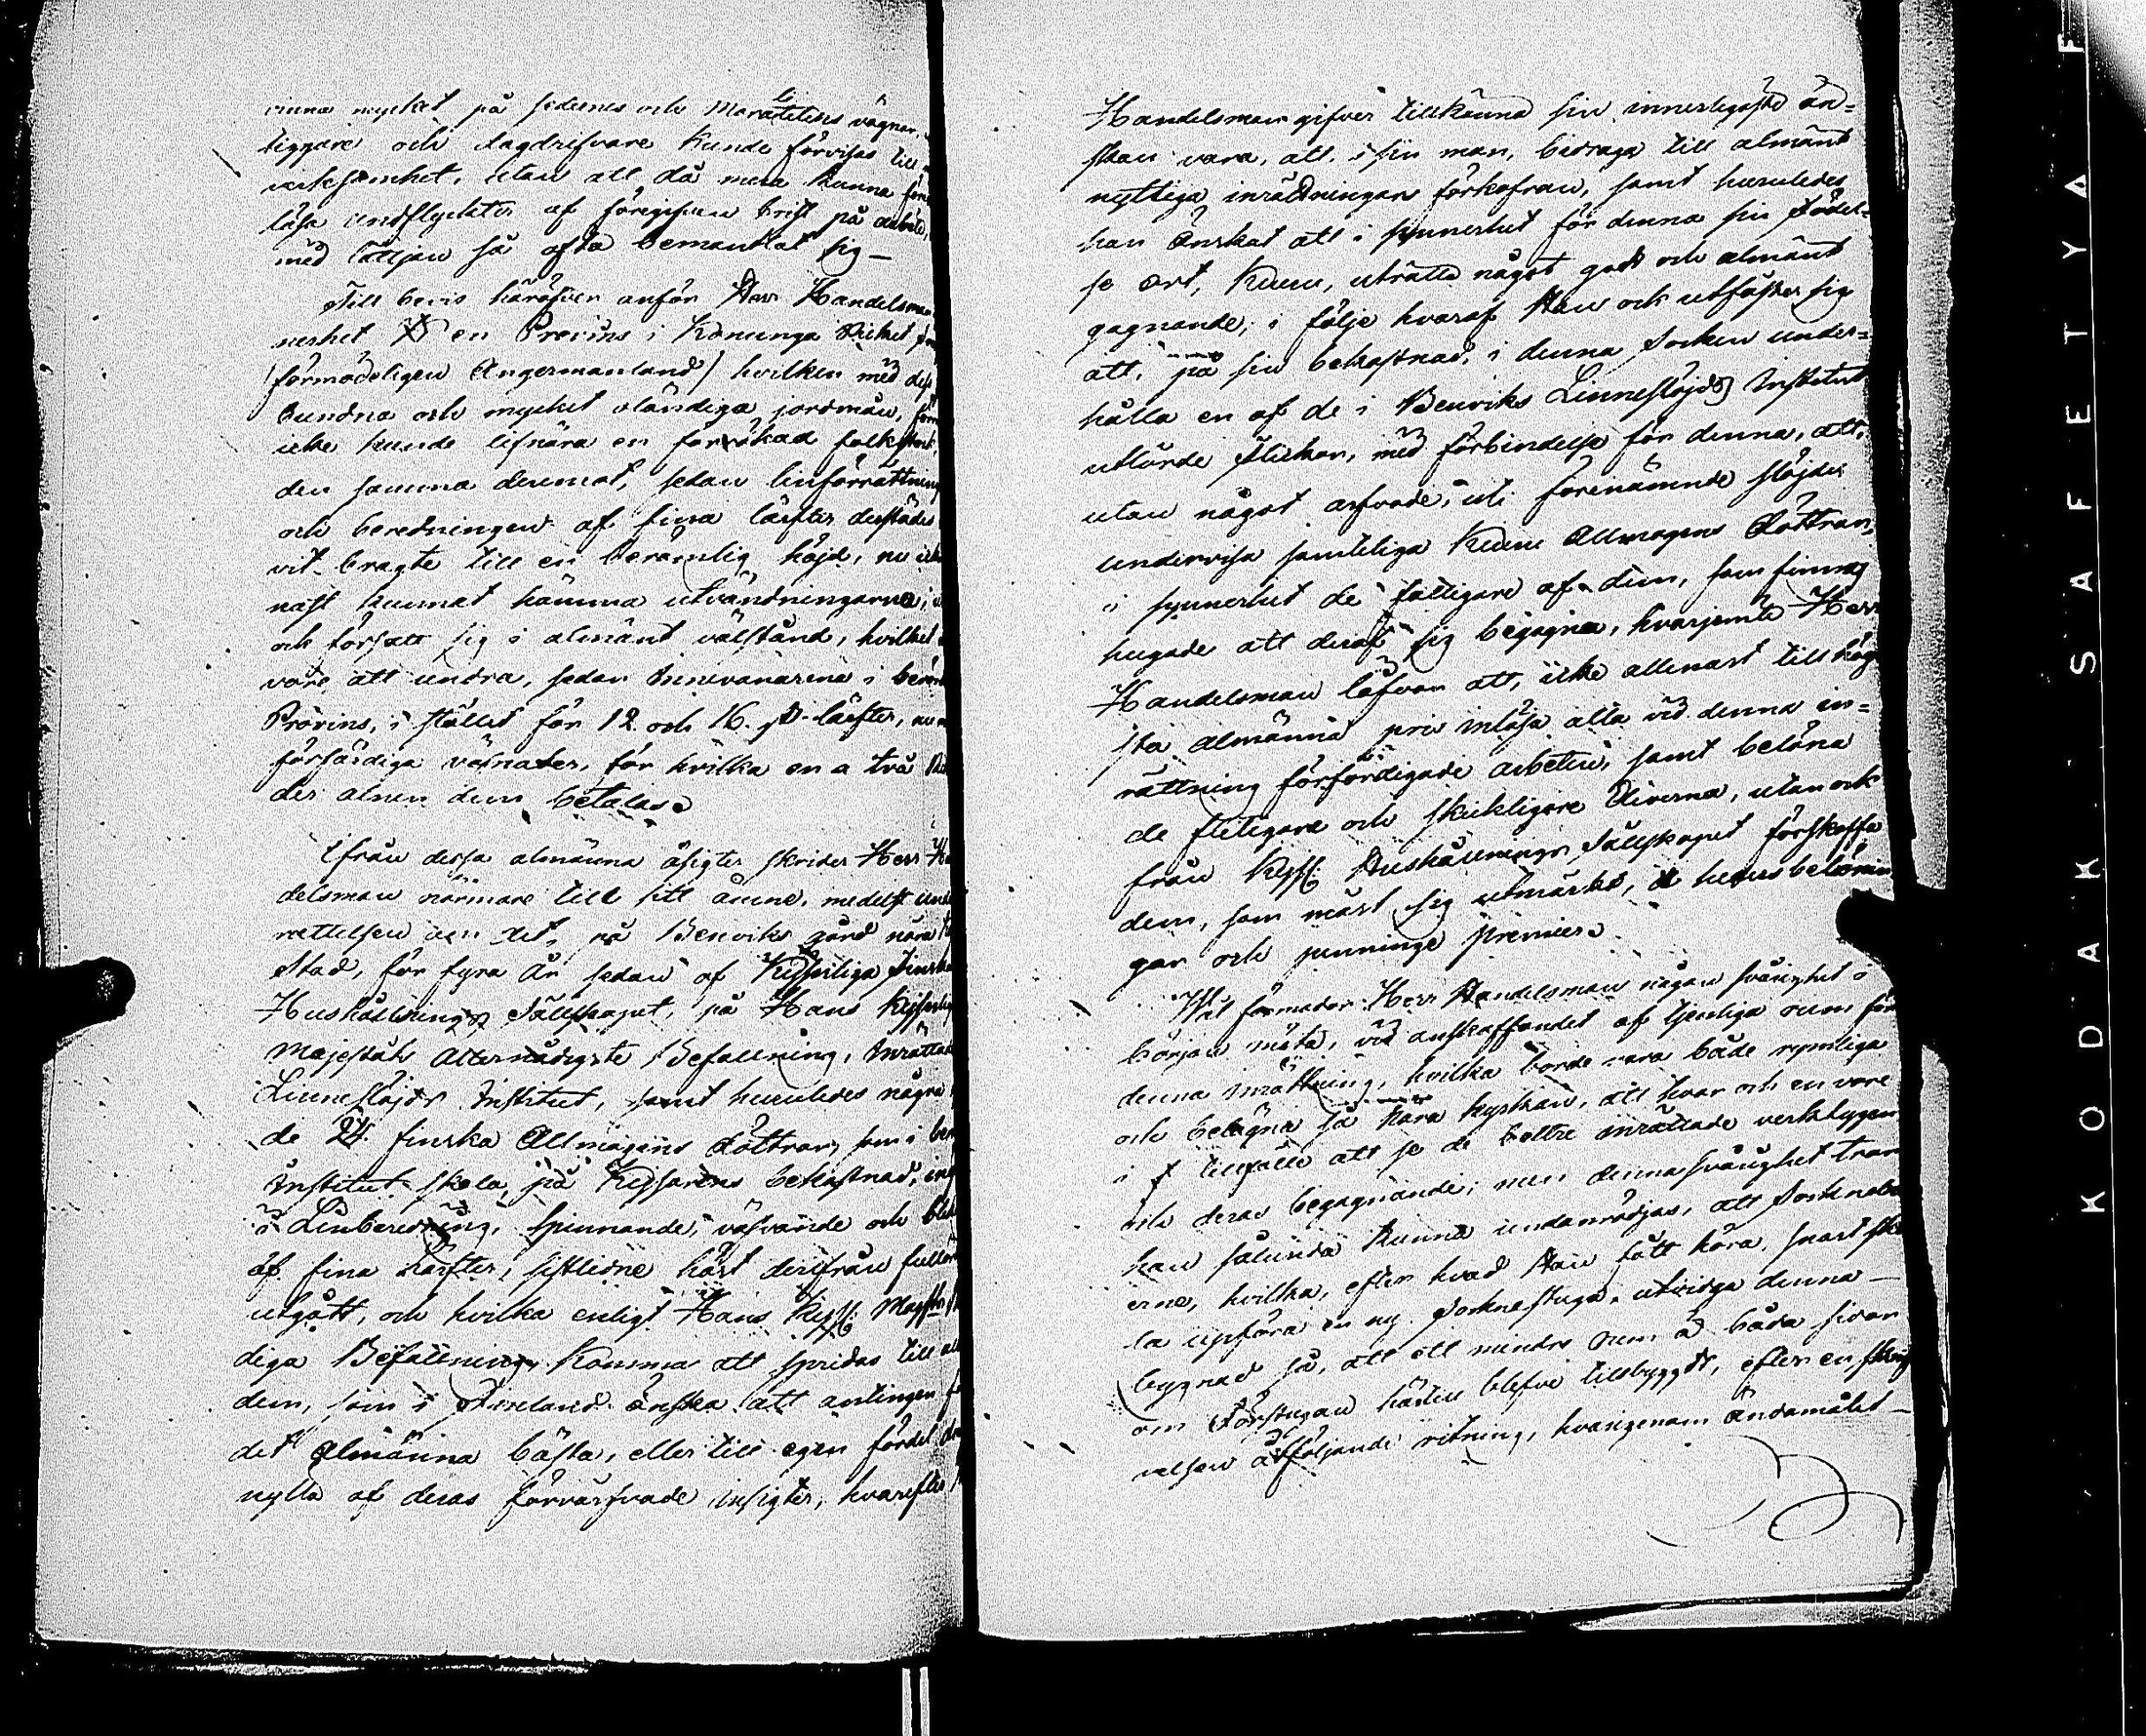 vinna mycket på sedernes och Moralitetens vägnar,
tiggare och dagdrifvare kunde förvisas till
verksamhet, utan att då mera kunna före
låsa undflykter af föregifven brist på arbete,
med lättjan så ofta bemantlat sig —
Till bevis häröfver anför Herr Handelsman
nerhet en Provins i Konunga Riket
(förmodeligen Ångermanland) hvilken med dess
bundna och mycket oländiga jordmån, förr
icke kunde lifnära en förökad folkstock,
den samma deremot, sedan linförrättning
och beredningen af fina lärfter derstädes
vit bragte till en berömlig höjd, nu icke
nast kunnat hämma utvandringarna,
och försatt sig i almänt välstånd, hvilket
vore att undra, sedan Innevånarena i
Provins, i stället för 12 och 16 lärfter, nu
förfärdiga väfnader, för hvilka en a två
der alnen dem betalas.
Ifrån dessa almänna åsigter skrider Herr Han
delsman närmare till sitt ämne, medelst under
rättelsen om det, på Benviks gård nära
Stad, för fyra år sedan af Kejserliga Finska
Hushållnings Sällskapet, på Hans Kejserliga
Majestäts Allernådigste Befallning, Inrättade
Linneslöjds Institut, samt huruledes några
de 24 finska Allmogens Döttrar, som i
Institut skola, på Kejsarens bekostnad,
i Linberedning, spinnande, väfvande och blek
af fina lärfter, sistledne höst derifrån
utgått, och hvilka enligt Hans Kejs. Majsts
diga Befallning komma att spridas till alla
dem, som i Finland önska att antingen för
det almänna bästa, eller till egen fördel
nytta af deras förvärfvade insigter, hvarefter
Handelsman gifver tillkänna sin innerligaste ön=
skan vara, att, i sin man, bidraga till almänt
nyttiga inrättningars förkofran, samt huruledes
han önskat att i synnerhet för denna sin Födel=
se ort, Kumo, uträtta något godt och almänt
gagnande, i följe hvaraf Han ock utfäster sig
att, på sin bekostnad, i denna Socken under=
hålla en af de i Benviks Linneslöjds Institut
utlärde flickor, med förbindelse för denna, att,
utan något arfvode, uti förenämnde slöjder
undervisa samteliga Kumo Allmogens Döttrar,
i synnerhet de fattigare af dem, som finnas
hugade att deraf sig begagna, hvarjemte Herr
Handelsman låfvar att, icke allenast till hög
sta almänna pris inlösa alla vid denna in=
rättning förfärdigade arbeten, samt belöna
de flitigare och skickligare Eleverna, utan ock
från Kejs. Hushållnings Sällskapet förskaffa
dem, som mäst sig utmärka, heders belönin
gar och pennings premier.
Väl förmodar Herr Handelsman någon svårighet i
början möta, vid anskaffandet af tjenliga rum för
denna inrättning, hvilka borde vara både rymliga
och belägna så nära kyrkan, att hvar och en vore
i tillfälle att se de bättre inrättade verktygen
och deras begagnande; men denna svårighet tror
han sålunda kunna undanrödjas, att Socknebo
erne, hvilka, efter hvad Han fått höra, snart sko
la upföra en ny Sockenstuga, utvidga denna —
byggnad så, att ett mindre rum å båda sidor
om Förstugan härtill blefve tillbyggdt, efter en skrif
velsen åtföljande ritning, hvarigenom ändamålet —
KODAK · SAFETY A F